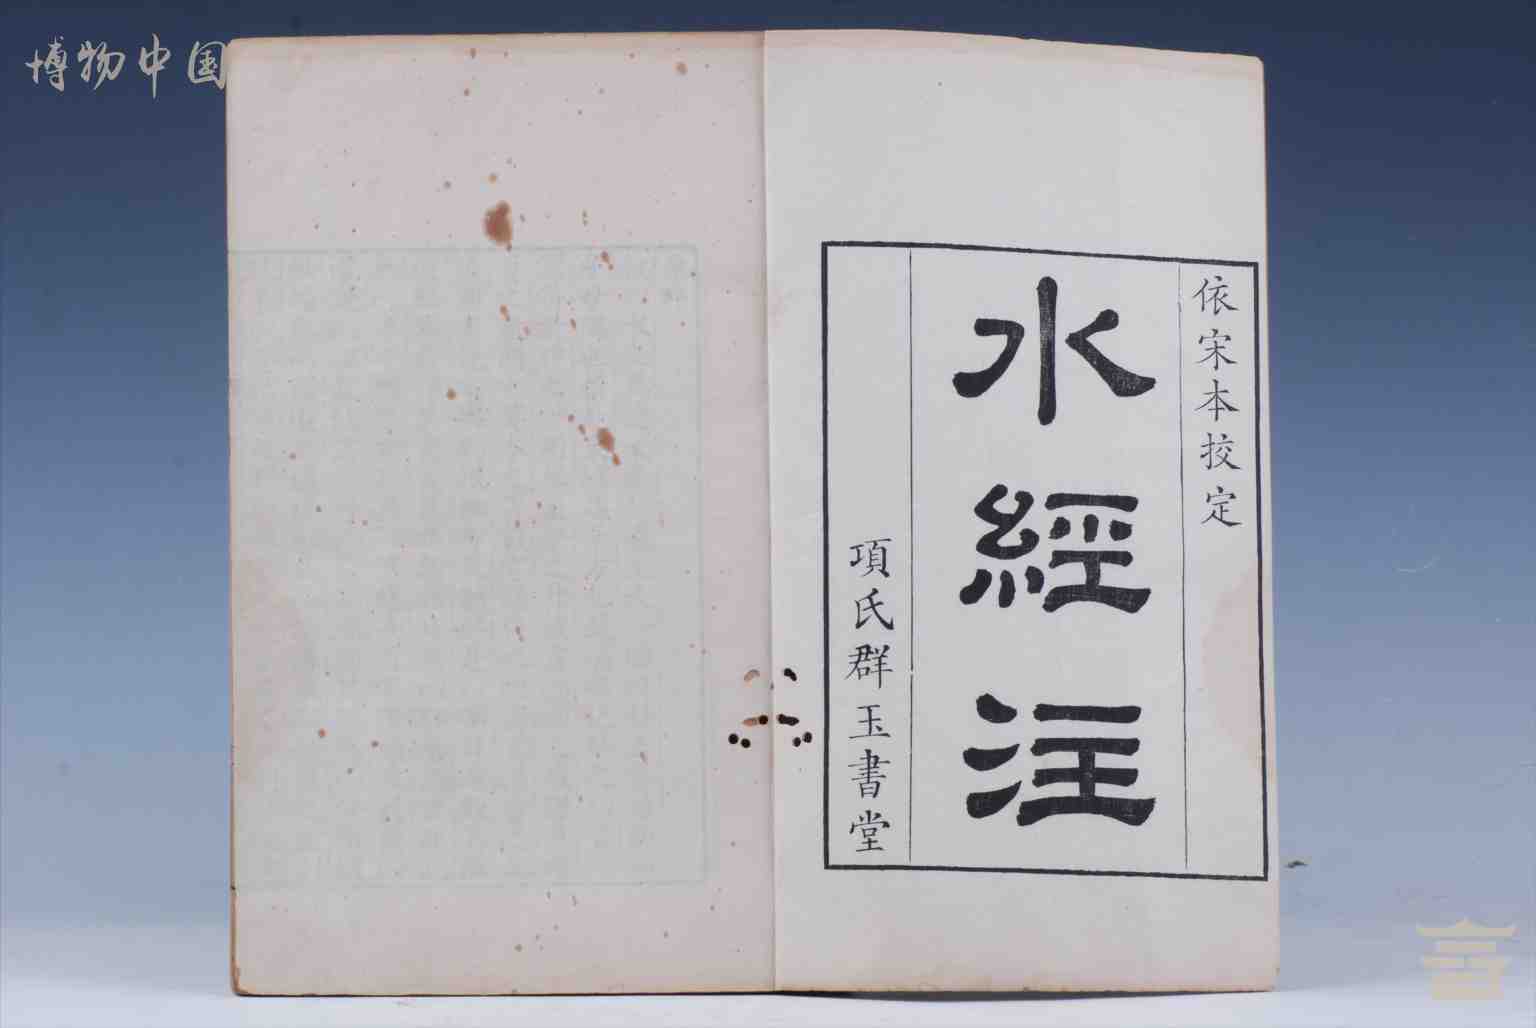 博物中国
依宋本挍定
水經注
項氏群玉書堂